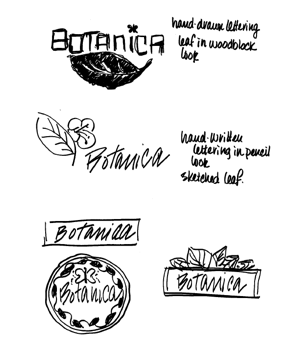 BOTANICA
hand-drawn lettering
leaf in woodblock
look
Botanica
hand-written
lettering in pencil
look
sketched leaf.
Botanica
Botanica
Botanica